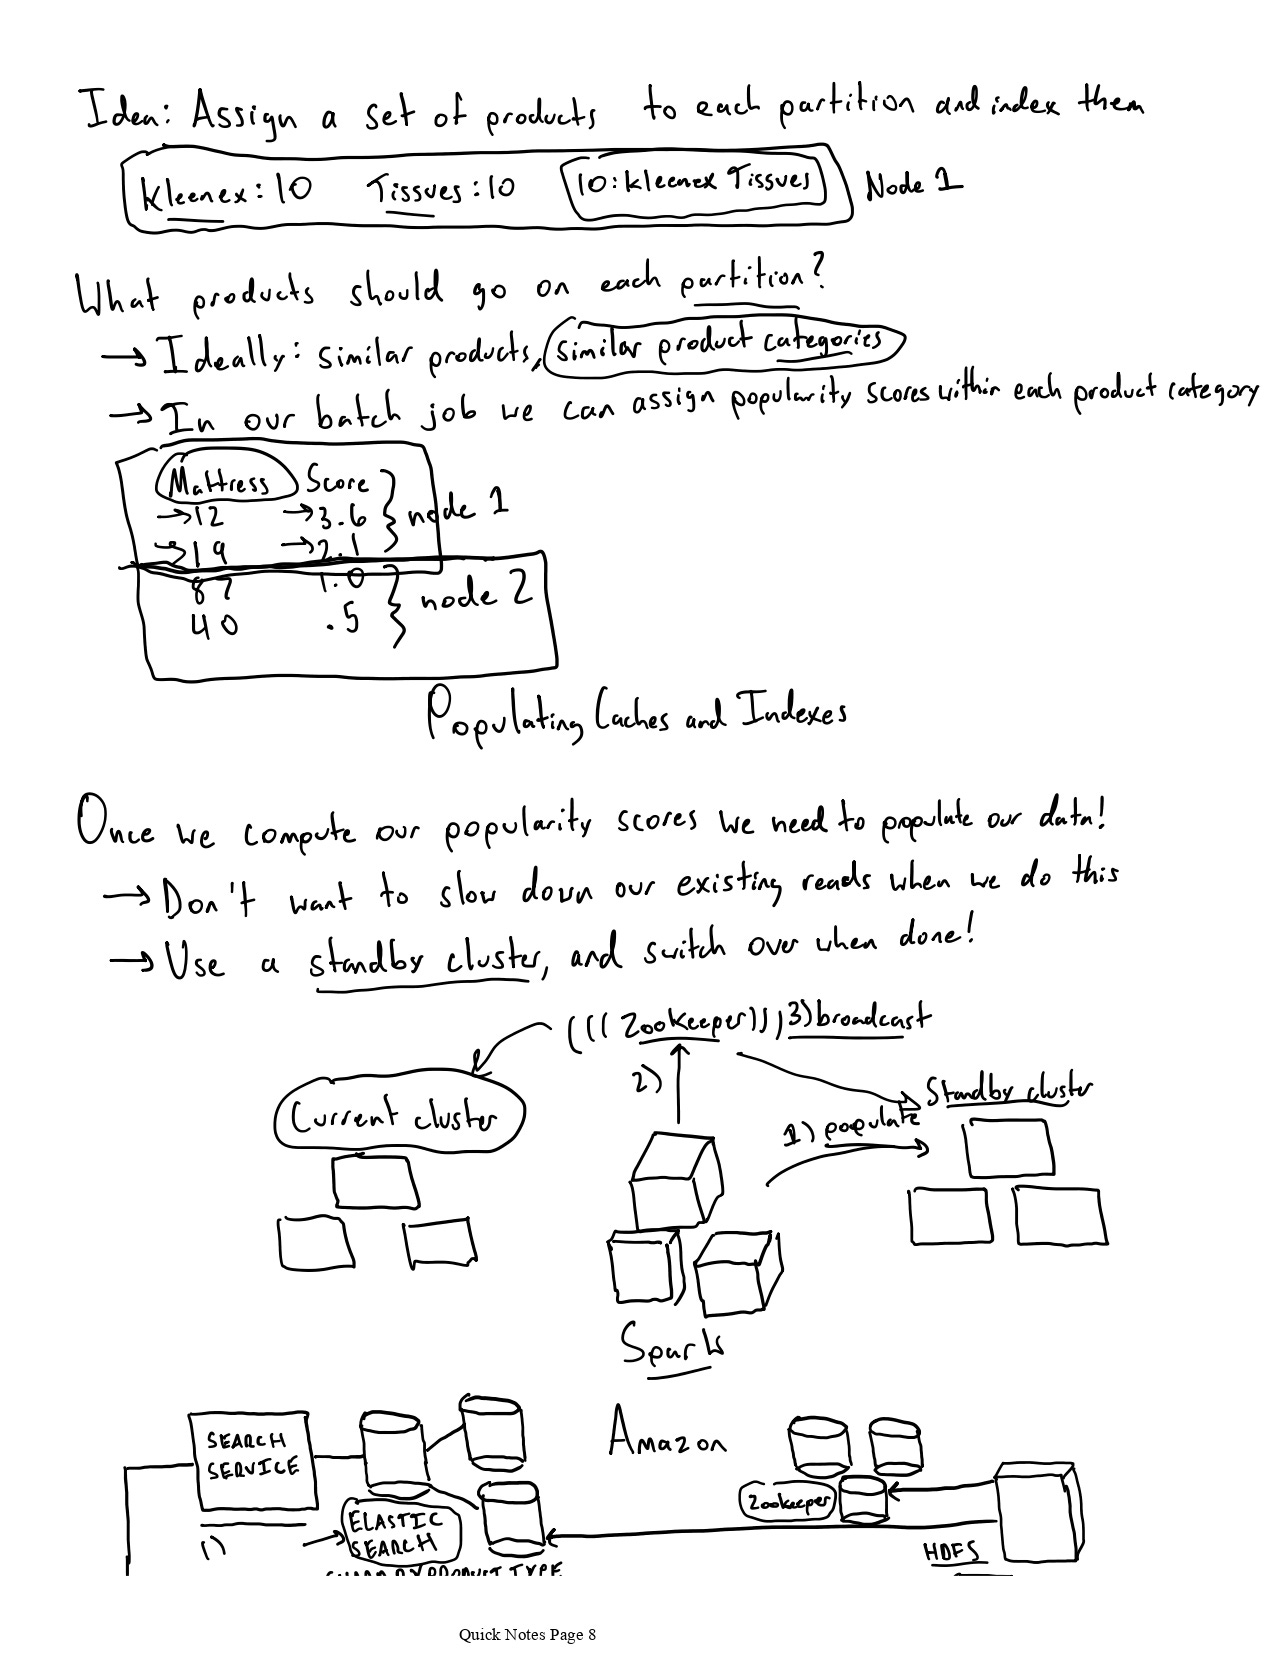 Idea: Assign a set of products to each partition and index them
Kleenex: 10 Tissues: 10 10: Kleenex Tissues Node 1
What products should go on each partition?
→ Ideally: similar products, similar product categories
→ In our batch job we can assign popularity scores within each product category
Mattress Score
→12 →3.6 node 1
→19 →2.1
87 1.0 node 2
40 .5
Populating Caches and Indexes
Once we compute our popularity scores we need to populate our data!
→ Don't want to slow down our existing reads when we do this
→ Use a standby cluster, and switch over when done!
(((Zookeeper))) 3) broadcast
2)
Standby cluster
Current cluster
1) populate
Spark
Amazon
SEARCH
SERVICE
Zookeeper
ELASTIC
SEARCH
1)
HDFS
PRODUCT TYPE
Quick Notes Page 8